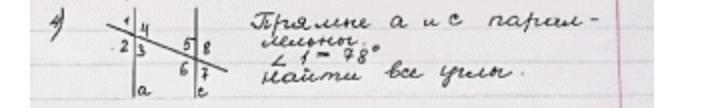 4)
1 4
2 3
5 8
6 7
a c
Прямые а и с парал-
лельны.
∠ 1 = 78°
Найти все углы.